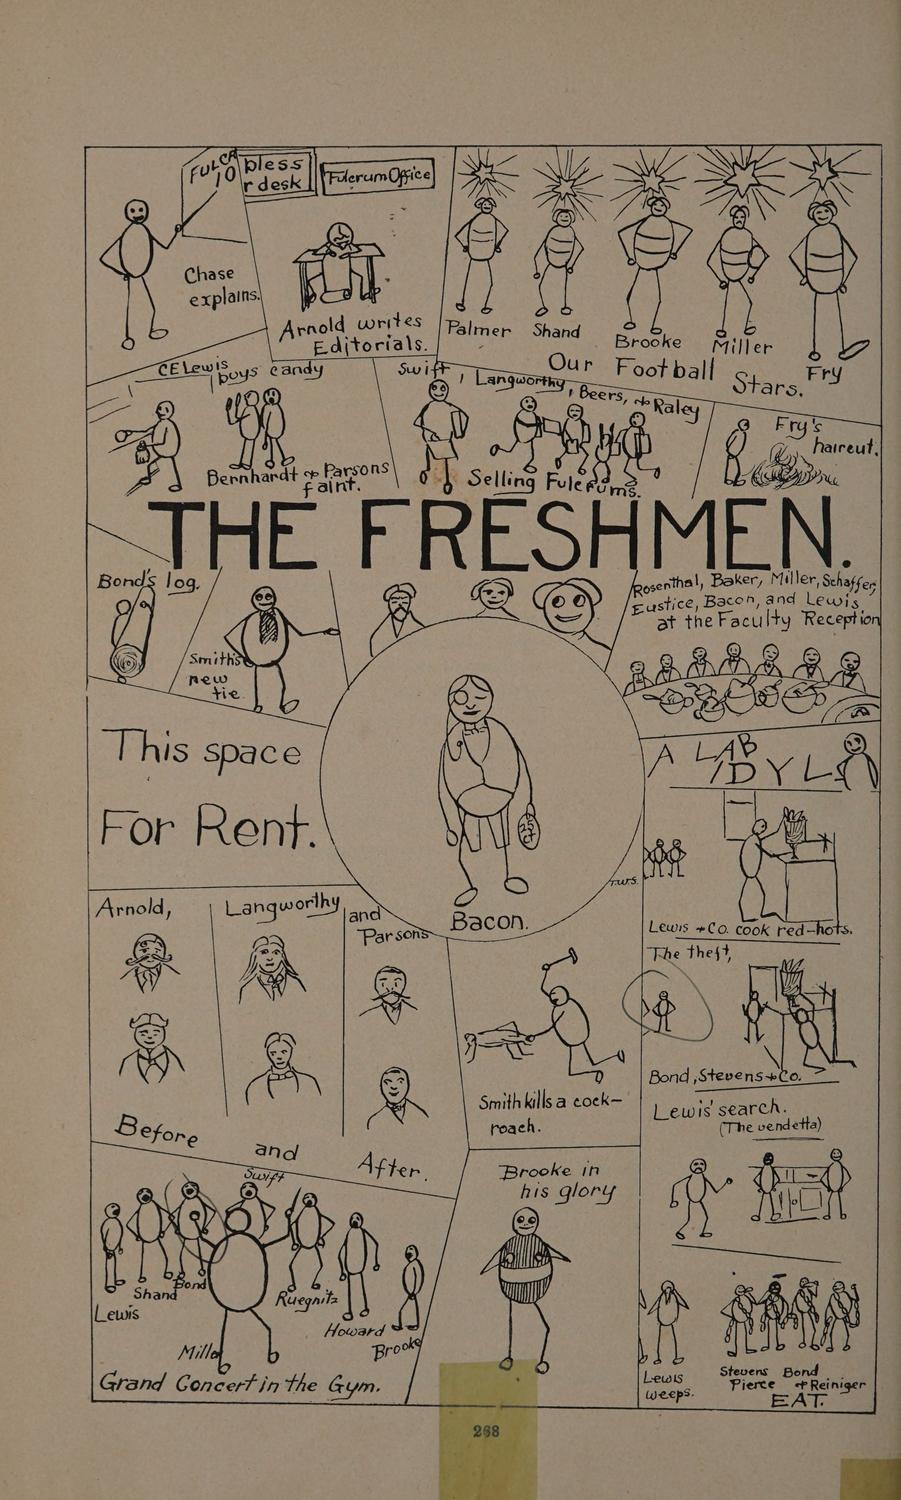 FULCR
10
bless
r desk
Fulcrum Office
Chase
explains.
Arnold writes
Editorials.
Palmer Shand Brooke Miller Fry
Our Football Stars.
C E Lewis
buys candy
Bernhardt & Parsons
faint.
Swift, Langworthy, Beers, & Raley
Selling Fulcrums.
Fry's
haircut.
THE FRESHMEN.
Bond's log.
Smith's
new
tie.
Rosenthal, Baker, Miller, Schaffer,
Eustice, Bacon, and Lewis
at the Faculty Reception
This space
For Rent.
Bacon.
T.W.S.
A LAB
IDYL
Lewis & Co. cook red-hots.
The theft,
Bond, Stevens & Co.
Lewis' search.
(The vendetta)
Lewis
weeps.
Stevens Bond
Pierce & Reiniger
EAT.
Arnold, Langworthy and
Parsons
Before and After.
Smith kills a cock-
roach.
Swift
Shand Bond
Lewis
Ruegnitz
Howard
Brooke
Mille
Grand Concert in the Gym.
Brooke in
his glory
268